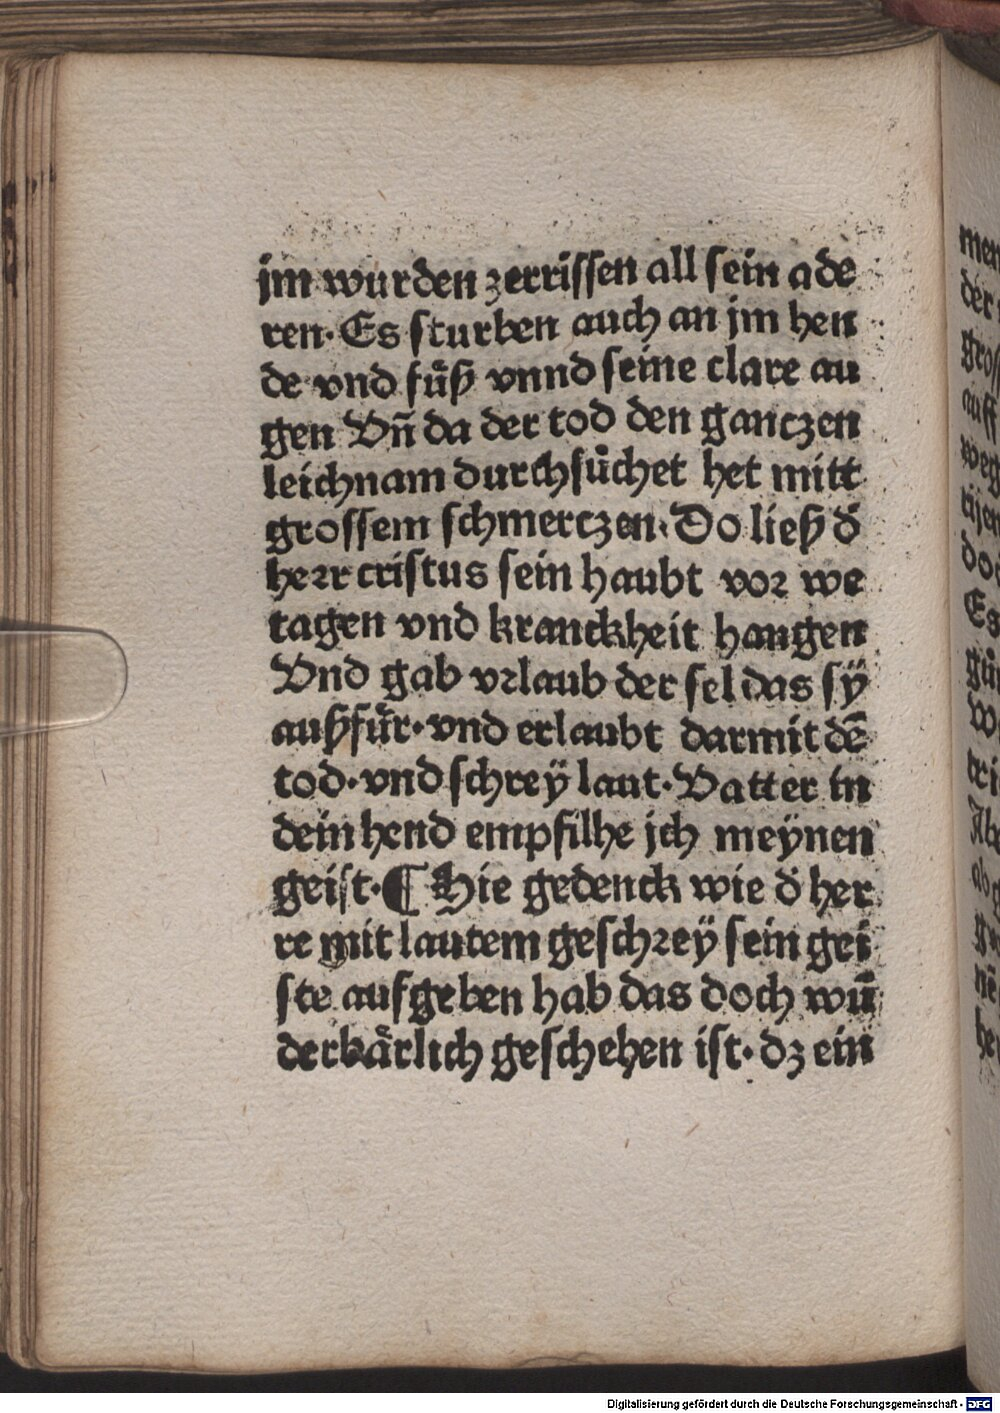 jm wurden zerrissen all sein ade
ren· Es sturben auch an jm hen
de vnd fuͤß vnnd seine clare au
gen Vñ da der tod den ganczen
leichnam durchsuͦchet het mitt
grossem schmerczen· Do ließ d̕
heꝛr cristus sein haubt voꝛ we
tagen vnd kranckheit hangen
Vnd gab vꝛlaub der sel das sÿ
außfuͤr· vnd erlaubt darmit dē
tod· vnd schreÿ laut· Vatter in
dein hend empfilhe jch meÿnen
geist· ¶ Hie gedenck wie d̕ her
re mit lautem geschꝛeÿ sein gei
ste aufgeben hab das doch wū
derbaͤrlich geschehen ist· dz ein
men
der
gros
auff
weg
Es
Digitalisierung gefördert durch die Deutsche Forschungsgemeinschaft - DFG